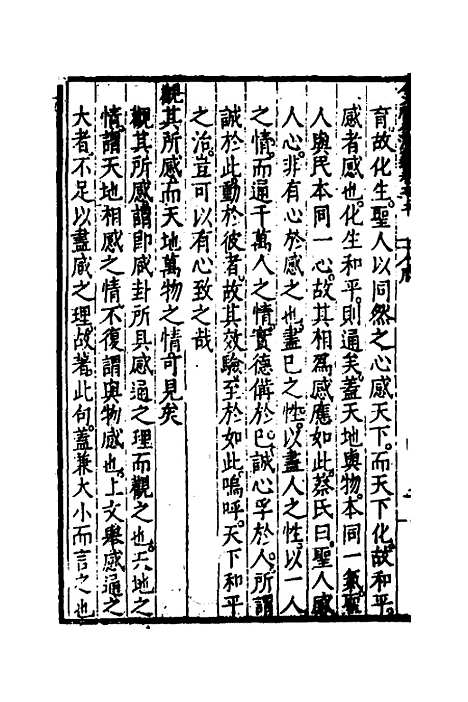 育故化生聖人以同然之心感天下而天下化故和平
感者感也化生和平則通矣蓋天地與物本同一氣聖
人與民本同一心故其相爲感應如此蔡氏曰聖人感
人心非有心於感之也盡已之性以盡人之性以一人
之情而通千萬人之情實德備於已誠心孚於人所謂
誠於此動於彼者故其效驗至於如此嗚呼天下和平
之治豈可以有心致之哉
觀其所感而天地萬物之情可見矣
觀其所感謂即咸卦所具感通之理而觀之也天地之
情謂天地相感之情不復謂與物感也上文舉感通之
大者不足以盡感之理故著此句蓋兼大小而言之也